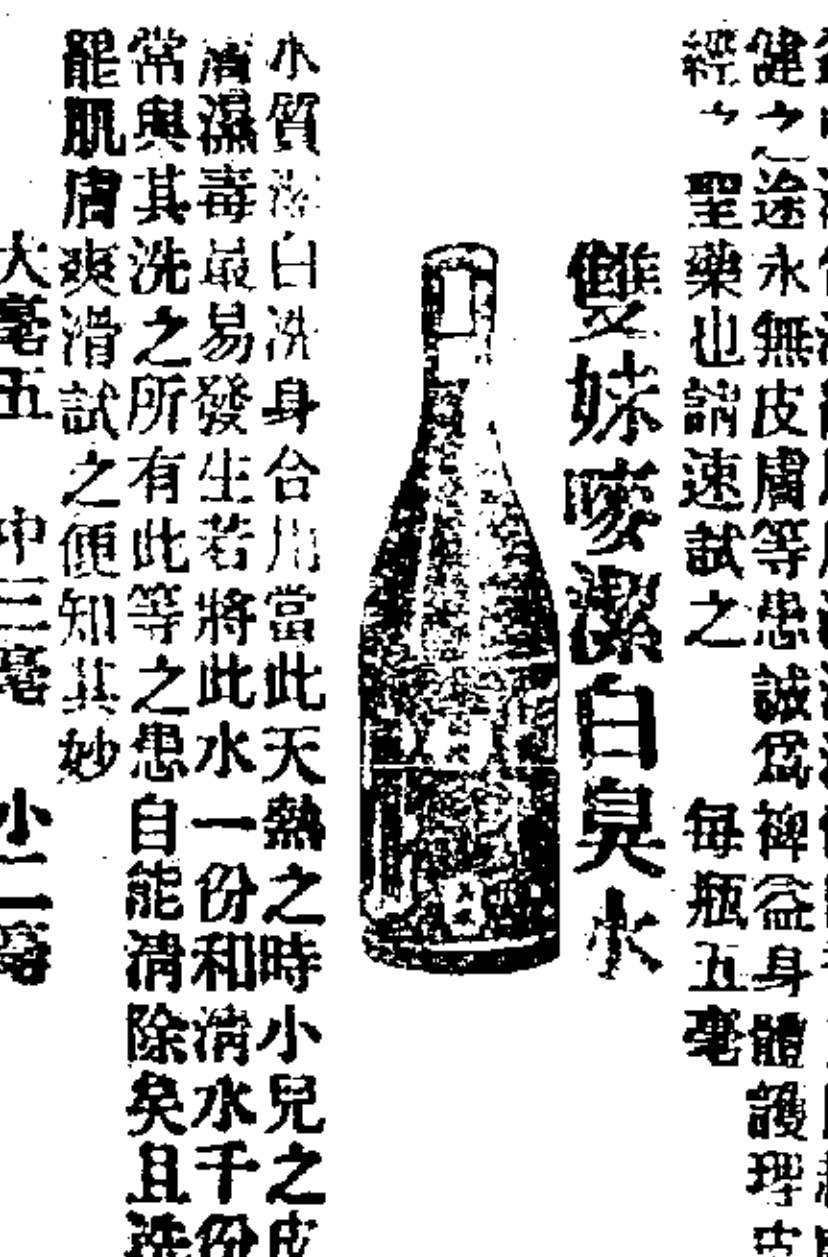 健之途永無皮膚等患誠爲裨益身體護理
經之聖藥也請速試之　每瓶五毫
雙妹嘜潔白臭水
水質潔白洗身合用當此天熱之時小兒之皮
濕毒最易發生若將此水一份和清水千份
常與其洗之所有此等之患自能清除矣且洗
罷肌膚爽滑試之便知其妙
大毫五　中三毫　小二毫